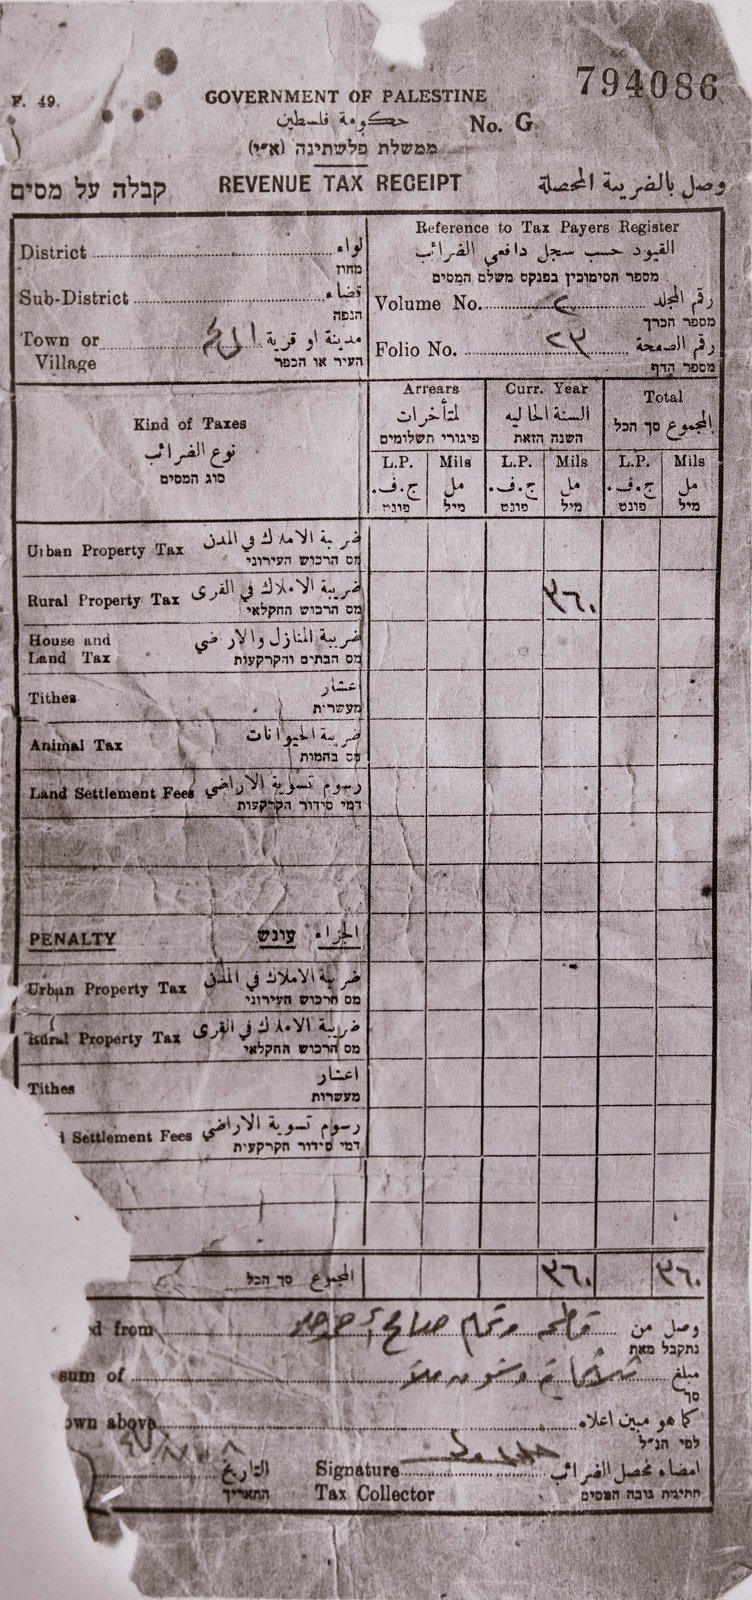 F. 49.
GOVERNMENT OF PALESTINE
794086
حكومة فلسطين
No. G
ממשלת פלשתינה (א״י)
קבלה על מסים
REVENUE TAX RECEIPT
وصل بالضريبة المحصلة
District لواء
מחוז
Sub-District قضاء
הנפה
Town or Village مدينة او قرية
העיר או הכפר
Reference to Tax Payers Register
القيود حسب سجل دافعي الضرائب
מספר הסימוכין בפנקס משלם המסים
Volume No. ٢ رقم المجلد
מספר הכרך
Folio No. ٢٣ رقم الصفحة
מספר הדף
Kind of Taxes
نوع الضرائب
סוג המסים
Arrears
متأخرات
פיגורי תשלומים
Curr. Year
السنة الحاليه
השנה הזאת
Total
المجموع סך הכל
L.P. Mils L.P. Mils L.P. Mils
ج.ف. مل ج.ف. مل ج.ف. مل
פונט מיל פונט מיל פונט מיל
Urban Property Tax ضريبة الاملاك في المدن
מס הרכוש העירוני
Rural Property Tax ضريبة الاملاك في القرى ٣٦٠
מס הרכוש החקלאי
House and Land Tax ضريبة المنازل والاراضي
מס הבתים והקרקעות
Tithes اعشار
מעשרות
Animal Tax ضريبة الحيوانات
מס בהמות
Land Settlement Fees رسوم تسوية الاراضي
דמי סידור הקרקעות
PENALTY עונש الجزاء
Urban Property Tax ضريبة الاملاك في المدن
מס הרכוש העירוני
Rural Property Tax ضريبة الاملاك في القرى
מס הרכוש החקלאי
Tithes اعشار
מעשרות
Settlement Fees رسوم تسوية الاراضي
דמי סידור הקרקעית
המجموع סך הכל ٣٦٠ ٣٦٠
ed from صالح وصل من
נתקבל מאת
sum of ثلاثماية وستون ملا مبلغ
סך
own above كما هو مبين اعلاه
לפי הנ״ל
التاريخ Signature امضاء محصل الضرائب
התאריך Tax Collector חתימת גובה המסים